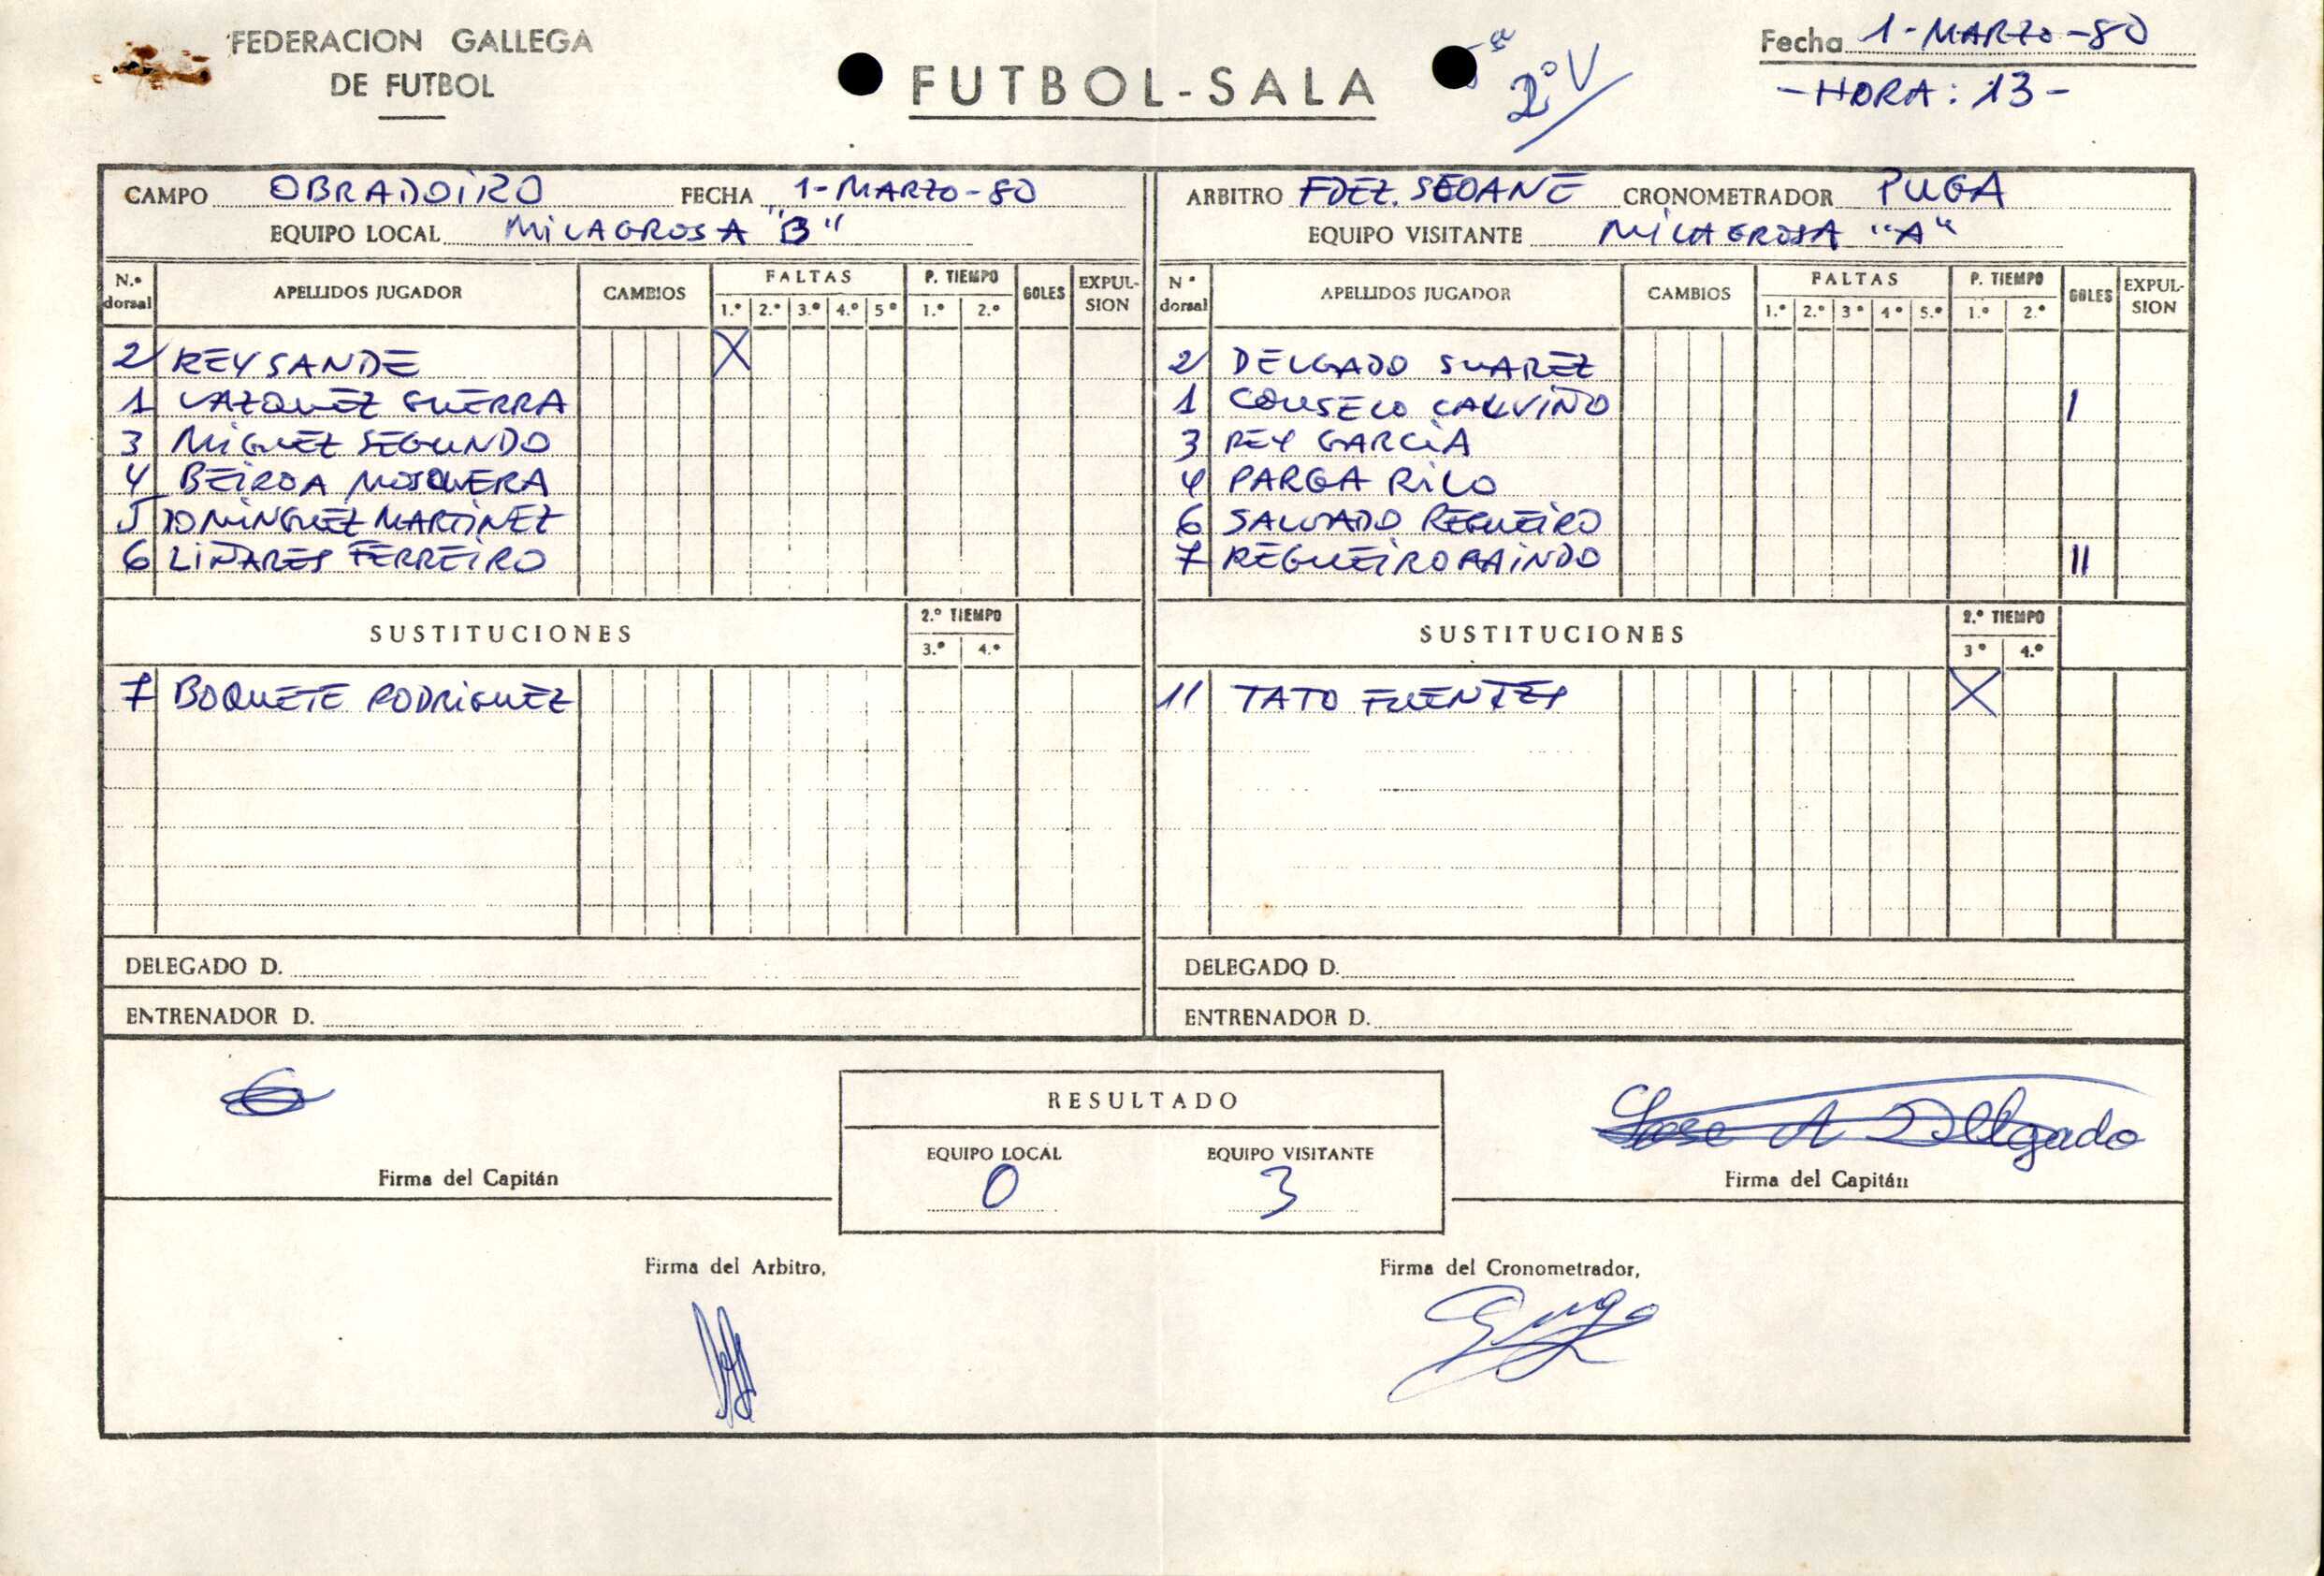 FEDERACION GALLEGA
DE FUTBOL
FUTBOL-SALA
2º V
Fecha 1-MARZO-80
-HORA: 13-
CAMPO OBRADOIRO FECHA 1-MARZO-80
EQUIPO LOCAL MILAGROSA "B"
ARBITRO FDEZ. SEOANE CRONOMETRADOR PUGA
EQUIPO VISITANTE MILAGROSA "A"
N.º dorsal APELLIDOS JUGADOR CAMBIOS FALTAS 1.º 2.º 3.º 4.º 5º P. TIEMPO 1.º 2.º GOLES EXPULSION
2 REY SANDE X
1 VAZQUEZ GUERRA
3 MIGUEZ SEGUNDO
4 BEIROA MOSQUERA
5 DOMINGUEZ MARTINEZ
6 LIÑARES FERREIRO
SUSTITUCIONES 2.º TIEMPO 3.º 4.º
7 BOQUETE RODRIGUEZ
DELEGADO D.
ENTRENADOR D.
N º dorsal APELLIDOS JUGADOR CAMBIOS FALTAS 1.º 2.º 3º 4º 5.º P. TIEMPO 1.º 2.º GOLES EXPULSION
2 DELGADO SUAREZ
1 COUSELO CALVIÑO I
3 REY GARCIA
4 PARGA RILO
6 SALVADO REGUEIRO
7 REGUEIRO II
SUSTITUCIONES 2.º TIEMPO 3º 4.º
11 TATO FUENTES X
DELEGADO D.
ENTRENADOR D.
Firma del Capitán
RESULTADO
EQUIPO LOCAL EQUIPO VISITANTE
0 3
Jose A Delgado
Firma del Capitán
Firma del Arbitro,
Firma del Cronometrador,